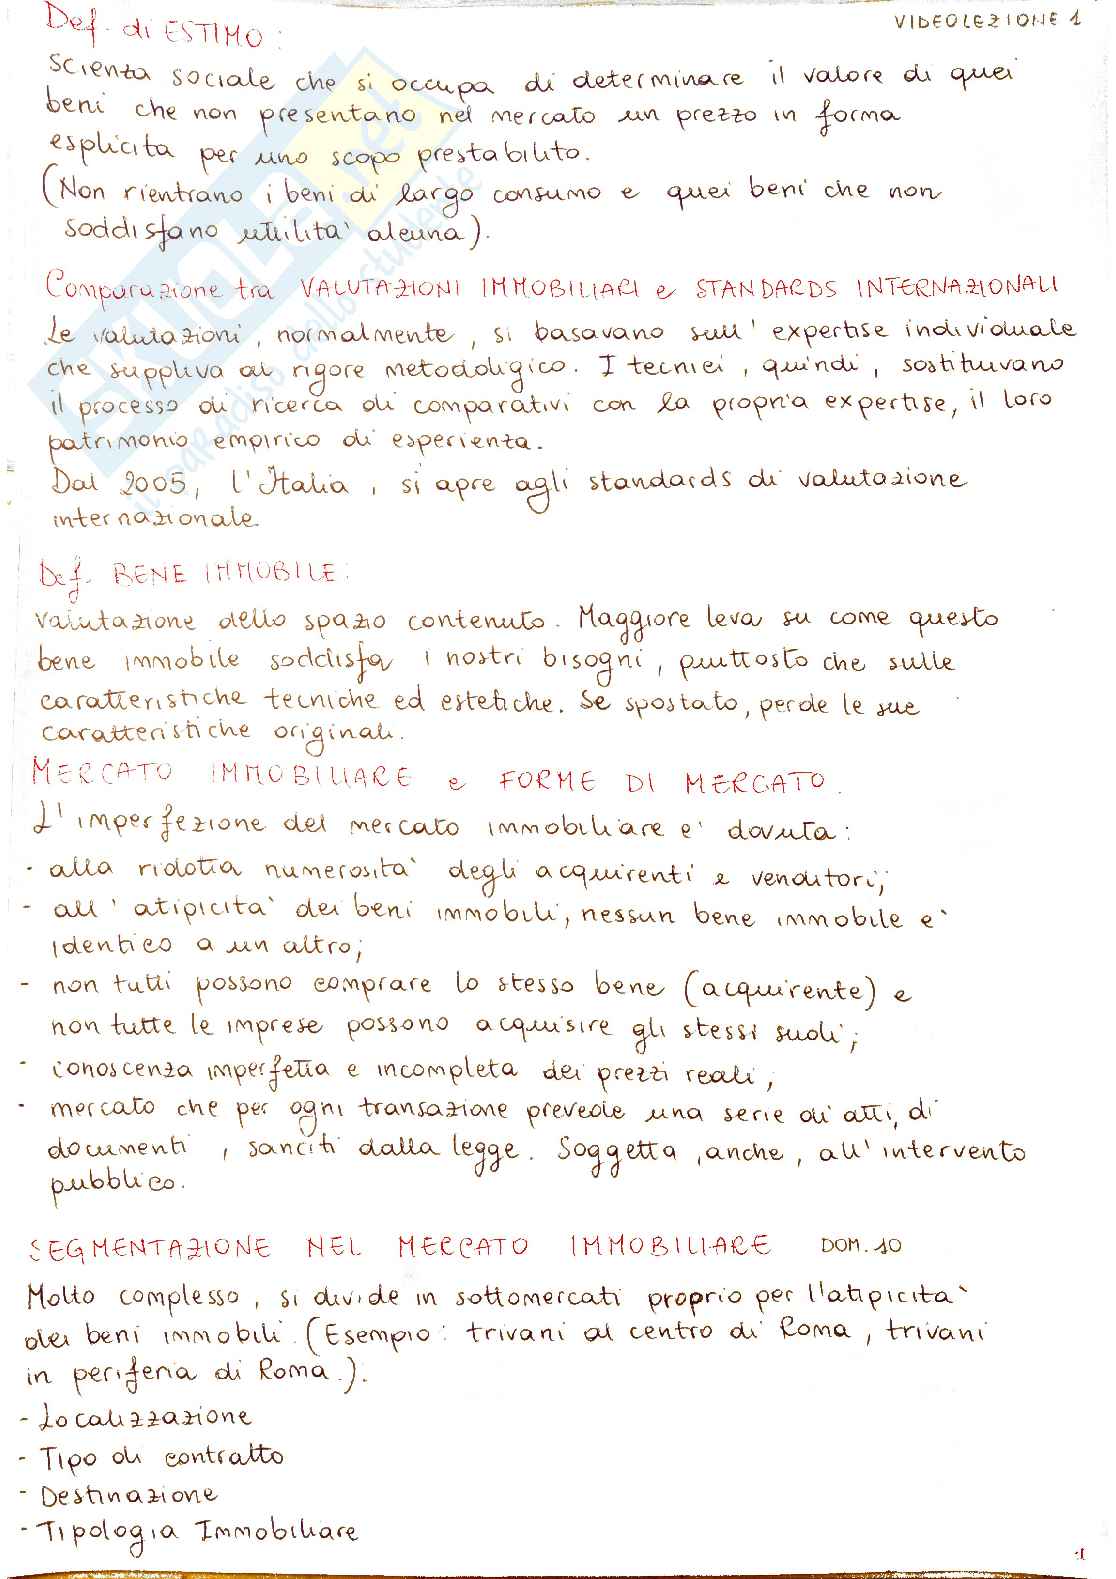 VIDEOLEZIONE 1
Def. di ESTIMO :
Scienza sociale che si occupa di determinare il valore di quei
beni che non presentano nel mercato un prezzo in forma
esplicita per uno scopo prestabilito.
(Non rientrano i beni di largo consumo e quei beni che non
soddisfano utilita' alcuna).
Comparazione tra VALUTAZIONI IMMOBILIARI e STANDARDS INTERNAZIONALI
Le valutazioni, normalmente, si basavano sull' expertise individuale
che suppliva al rigore metodoligico. I tecnici, quindi, sostituivano
il processo di ricerca di comparativi con la propria expertise, il loro
patrimonio empirico di esperienza.
Dal 2005, l'Italia, si apre agli standards di valutazione
internazionale.
Def. BENE IMMOBILE:
Valutazione dello spazio contenuto. Maggiore leva su come questo
bene immobile soddisfa i nostri bisogni, piuttosto che sulle
caratteristiche tecniche ed estetiche. Se spostato, perde le sue
caratteristiche originali.
MERCATO IMMOBILIARE e FORME DI MERCATO.
L'imperfezione del mercato immobiliare e' dovuta:
- alla ridotta numerosita' degli acquirenti e venditori;
- all' atipicita' dei beni immobili, nessun bene immobile e'
identico a un altro;
- non tutti possono comprare lo stesso bene (acquirente) e
non tutte le imprese possono acquisire gli stessi suoli;
- conoscenza imperfetta e incompleta dei prezzi reali;
- mercato che per ogni transazione prevede una serie di atti, di
documenti, sanciti dalla legge. Soggetta, anche, all'intervento
pubblico.
SEGMENTAZIONE NEL MERCATO IMMOBILIARE DOM. 10
Molto complesso, si divide in sottomercati proprio per l'atipicita'
dei beni immobili. (Esempio: trivani al centro di Roma, trivani
in periferia di Roma.).
- Localizzazione
- Tipo di contratto
- Destinazione
- Tipologia Immobiliare
1
SKUOLA.net
il paradiso dello studente